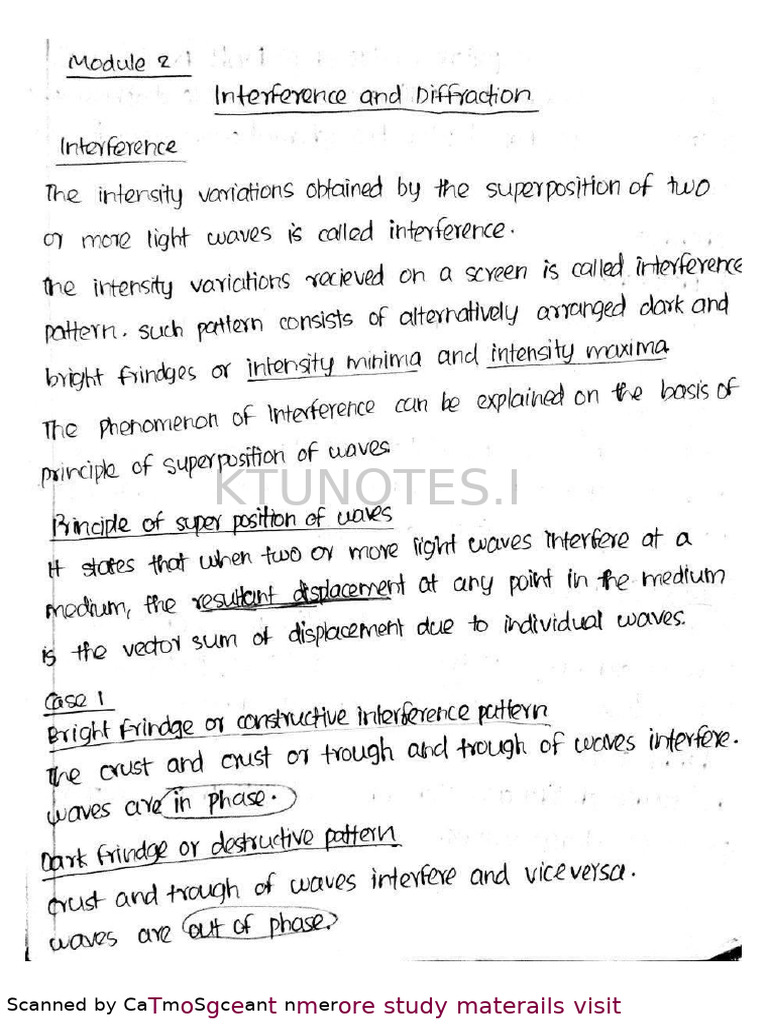 Module 2
Interference and Diffraction
Interference
The intensity variations obtained by the superposition of two
or more light waves is called interference.
The intensity variations recieved on a screen is called interference
pattern. such pattern consists of alternatively arranged dark and
bright frindges or intensity minima and intensity maxima
The phenomenon of Interference can be explained on the basis of
principle of superposition of waves.
KTUNOTES.I
Principle of super position of waves
It states that when two or more light waves interfere at a
medium, the resultant displacement at any point in the medium
is the vector sum of displacement due to individual waves.
Case 1
Bright frindge or constructive interference pattern
The crust and crust or trough and trough of waves interfere.
waves are in phase.
Dark frindge or destructive pattern
crust and trough of waves interfere and vice versa.
waves are out of phase.
Scanned by
more study materails visit